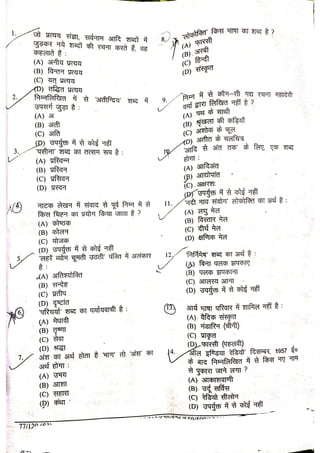 1. जो प्रत्यय संज्ञा, सर्वनाम आदि शब्दों में
जुड़कर नये शब्दों की रचना करते हैं, वह
कहलाते हैं :
(A) अनीय प्रत्यय
(B) विन्तन प्रत्यय
(C) यत् प्रत्यय
(D) तद्धित प्रत्यय
2. निम्नलिखित में से 'अतीन्द्रिय' शब्द में
उपसर्ग जुड़ा है :
(A) अ
(B) अती
(C) अति
(D) उपर्युक्त में से कोई नहीं
3. 'पसीना' शब्द का तत्सम रूप है :
(A) प्रविन्न
(B) प्रविन
(C) प्रसिवन
(D) प्रस्वन
4. नाटक लेखन में संवाद से पूर्व निम्न में से
किस चिह्न का प्रयोग किया जाता है ?
(A) कोष्ठक
(B) कोलन
(C) योजक
(D) उपर्युक्त में से कोई नहीं
5. 'लहरें व्योम चूमती उठतीं' पंक्ति में अलंकार
है :
(A) अतिश्योक्ति
(B) सन्देह
(C) प्रतीप
(D) दृष्टांत
6. 'परिचर्या' शब्द का पर्यायवाची है :
(A) मेधावी
(B) तृष्णा
(C) सेवा
(D) श्रद्धा
7. अंश का अर्थ होता है 'भाग' तो 'अंस' का
अर्थ होगा :
(A) उभय
(B) आशा
(C) सहारा
(D) कंधा
8. 'लोकोक्ति' किस भाषा का शब्द है ?
(A) फारसी
(B) अरबी
(C) हिन्दी
(D) संस्कृत
9. निम्न में से कौन-सी गद्य रचना महादेवी
वर्मा द्वारा लिखित नहीं है ?
(A) पथ के साथी
(B) श्रृंखला की कड़ियाँ
(C) अशोक के फूल
(D) अतीत के चलचित्र
10. 'आदि से अंत तक' के लिए, एक शब्द
होगा :
(A) आदिअंत
(B) आद्योपांत
(C) अक्षरशः
(D) उपर्युक्त में से कोई नहीं
11. 'नदी नाव संयोग' लोकोक्ति का अर्थ है :
(A) लघु मेल
(B) विस्तार मेल
(C) दीर्घ मेल
(D) क्षणिक मेल
12. 'निर्निमेष' शब्द का अर्थ है :
(A) बिना पलक झपकाए
(B) पलक झपकाना
(C) आलस्य आना
(D) उपर्युक्त में से कोई नहीं
13. आर्य भाषा परिवार में शामिल नहीं है :
(A) वैदिक संस्कृत
(B) मंडारिन (चीनी)
(C) प्राकृत
(D) फारसी (पहलवी)
14. 'ऑल इण्डिया रेडियो' दिसम्बर, 1957 ई०
के बाद निम्नलिखित में से किस नाम
से पुकारा जाने लगा ?
(A) आकाशवाणी
(B) उर्दू सर्विस
(C) रेडियो सीलोन
(D) उपर्युक्त में से कोई नहीं